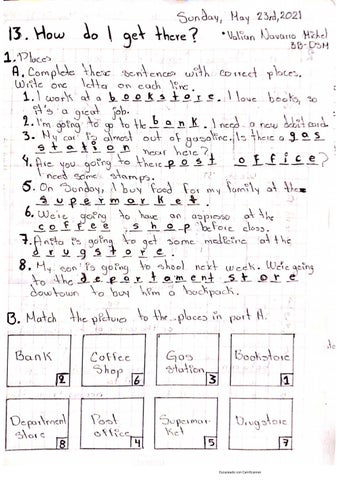 Sunday, May 23rd, 2021
13. How do I get there?
• Valian Navarro Mitzel
BB-DSM
1. Places
A. Complete these sentences with correct places.
Write one letter on each line.
1. I work at a bookstore. I love books, so
it's a great job.
2. I'm going to go to the bank. I need a new debit card.
3. My car is almost out of gasoline. Is there a gas
station near here?
4. Are you going to there post office?
I need some stamps.
5. On Sunday, I buy food for my family at the
supermarket.
6. We're going to have an espresso at the
coffee shop before class.
7. Anita is going to get some medicine at the
drugstore.
8. My son is going to shool next week. We're going
to the departament store
dowtown to buy him a backpack.
B. Match the picture to the places in part A.
Bank
2
Coffee
Shop
6
Gas
station
3
Bookstore
1
Department
Store
8
Post
office
4
Supermar-
ket
5
Drugstore
7
Escaneado con CamScanner